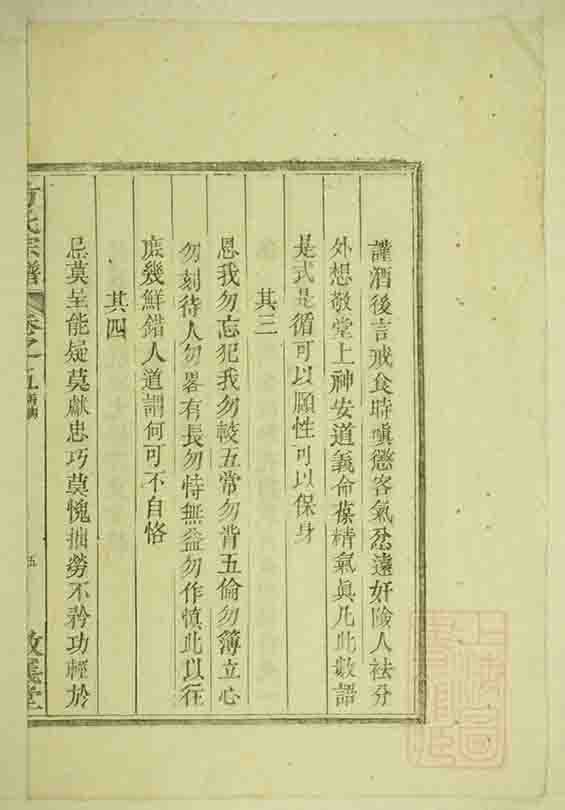 謹酒後言戒食時嗔懲客氣忿遠奸險人祛分
外想敬堂上神安道義命葆精氣眞凡此數語
是式是循可以頤性可以保身
其三
恩我勿忘犯我勿較五常勿背五倫勿簿立心
勿刻待人勿畧有長勿恃無益勿作愼此以往
庶幾鮮錯人道謂何可不自恪
其四
忌莫呈能疑莫獻忠巧莫愧拙勞不矜功輕於
方氏宗譜
卷之五
五
敦善堂
上海圖書館藏